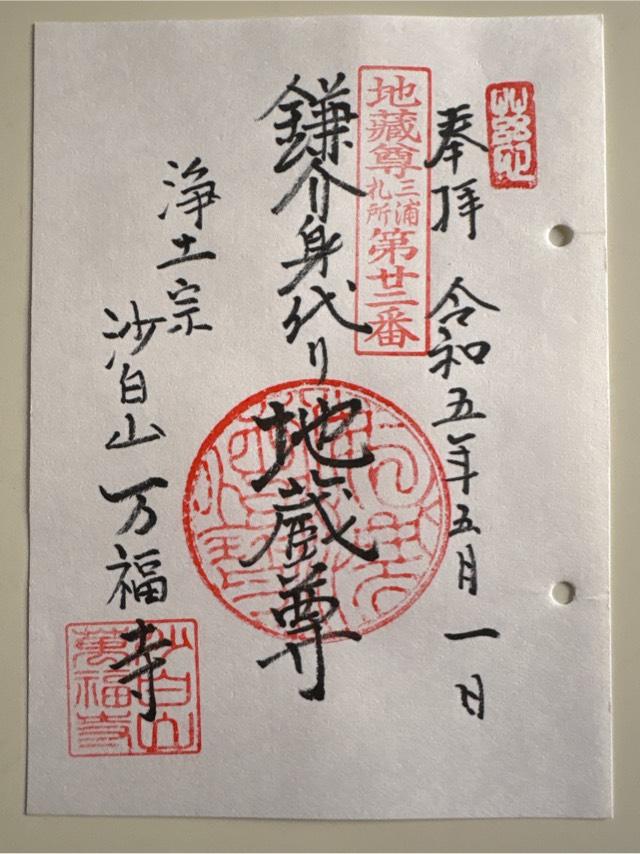 奉拝 令和五年五月一日
地蔵尊 三浦札所 第廿二番
鎌介身代り地蔵尊
浄土宗
沙白山 万福寺
沙白山
萬福寺